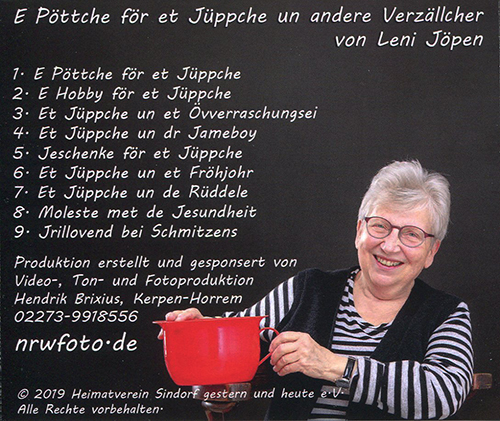 E Pöttche för et Jüppche un andere Verzällcher
von Leni Jöpen
1. E Pöttche för et Jüppche
2. E Hobby för et Jüppche
3. Et Jüppche un et Övverraschungsei
4. Et Jüppche un dr Jameboy
5. Jeschenke för et Jüppche
6. Et Jüppche un et Fröhjohr
7. Et Jüppche un de Rüddele
8. Moleste met de Jesundheit
9. Jrillovend bei Schmitzens
Produktion erstellt und gesponsert von
Video-, Ton- und Fotoproduktion
Hendrik Brixius, Kerpen-Horrem
02273-9918556
nrwfoto.de
© 2019 Heimatverein Sindorf gestern und heute e.V.
Alle Rechte vorbehalten.